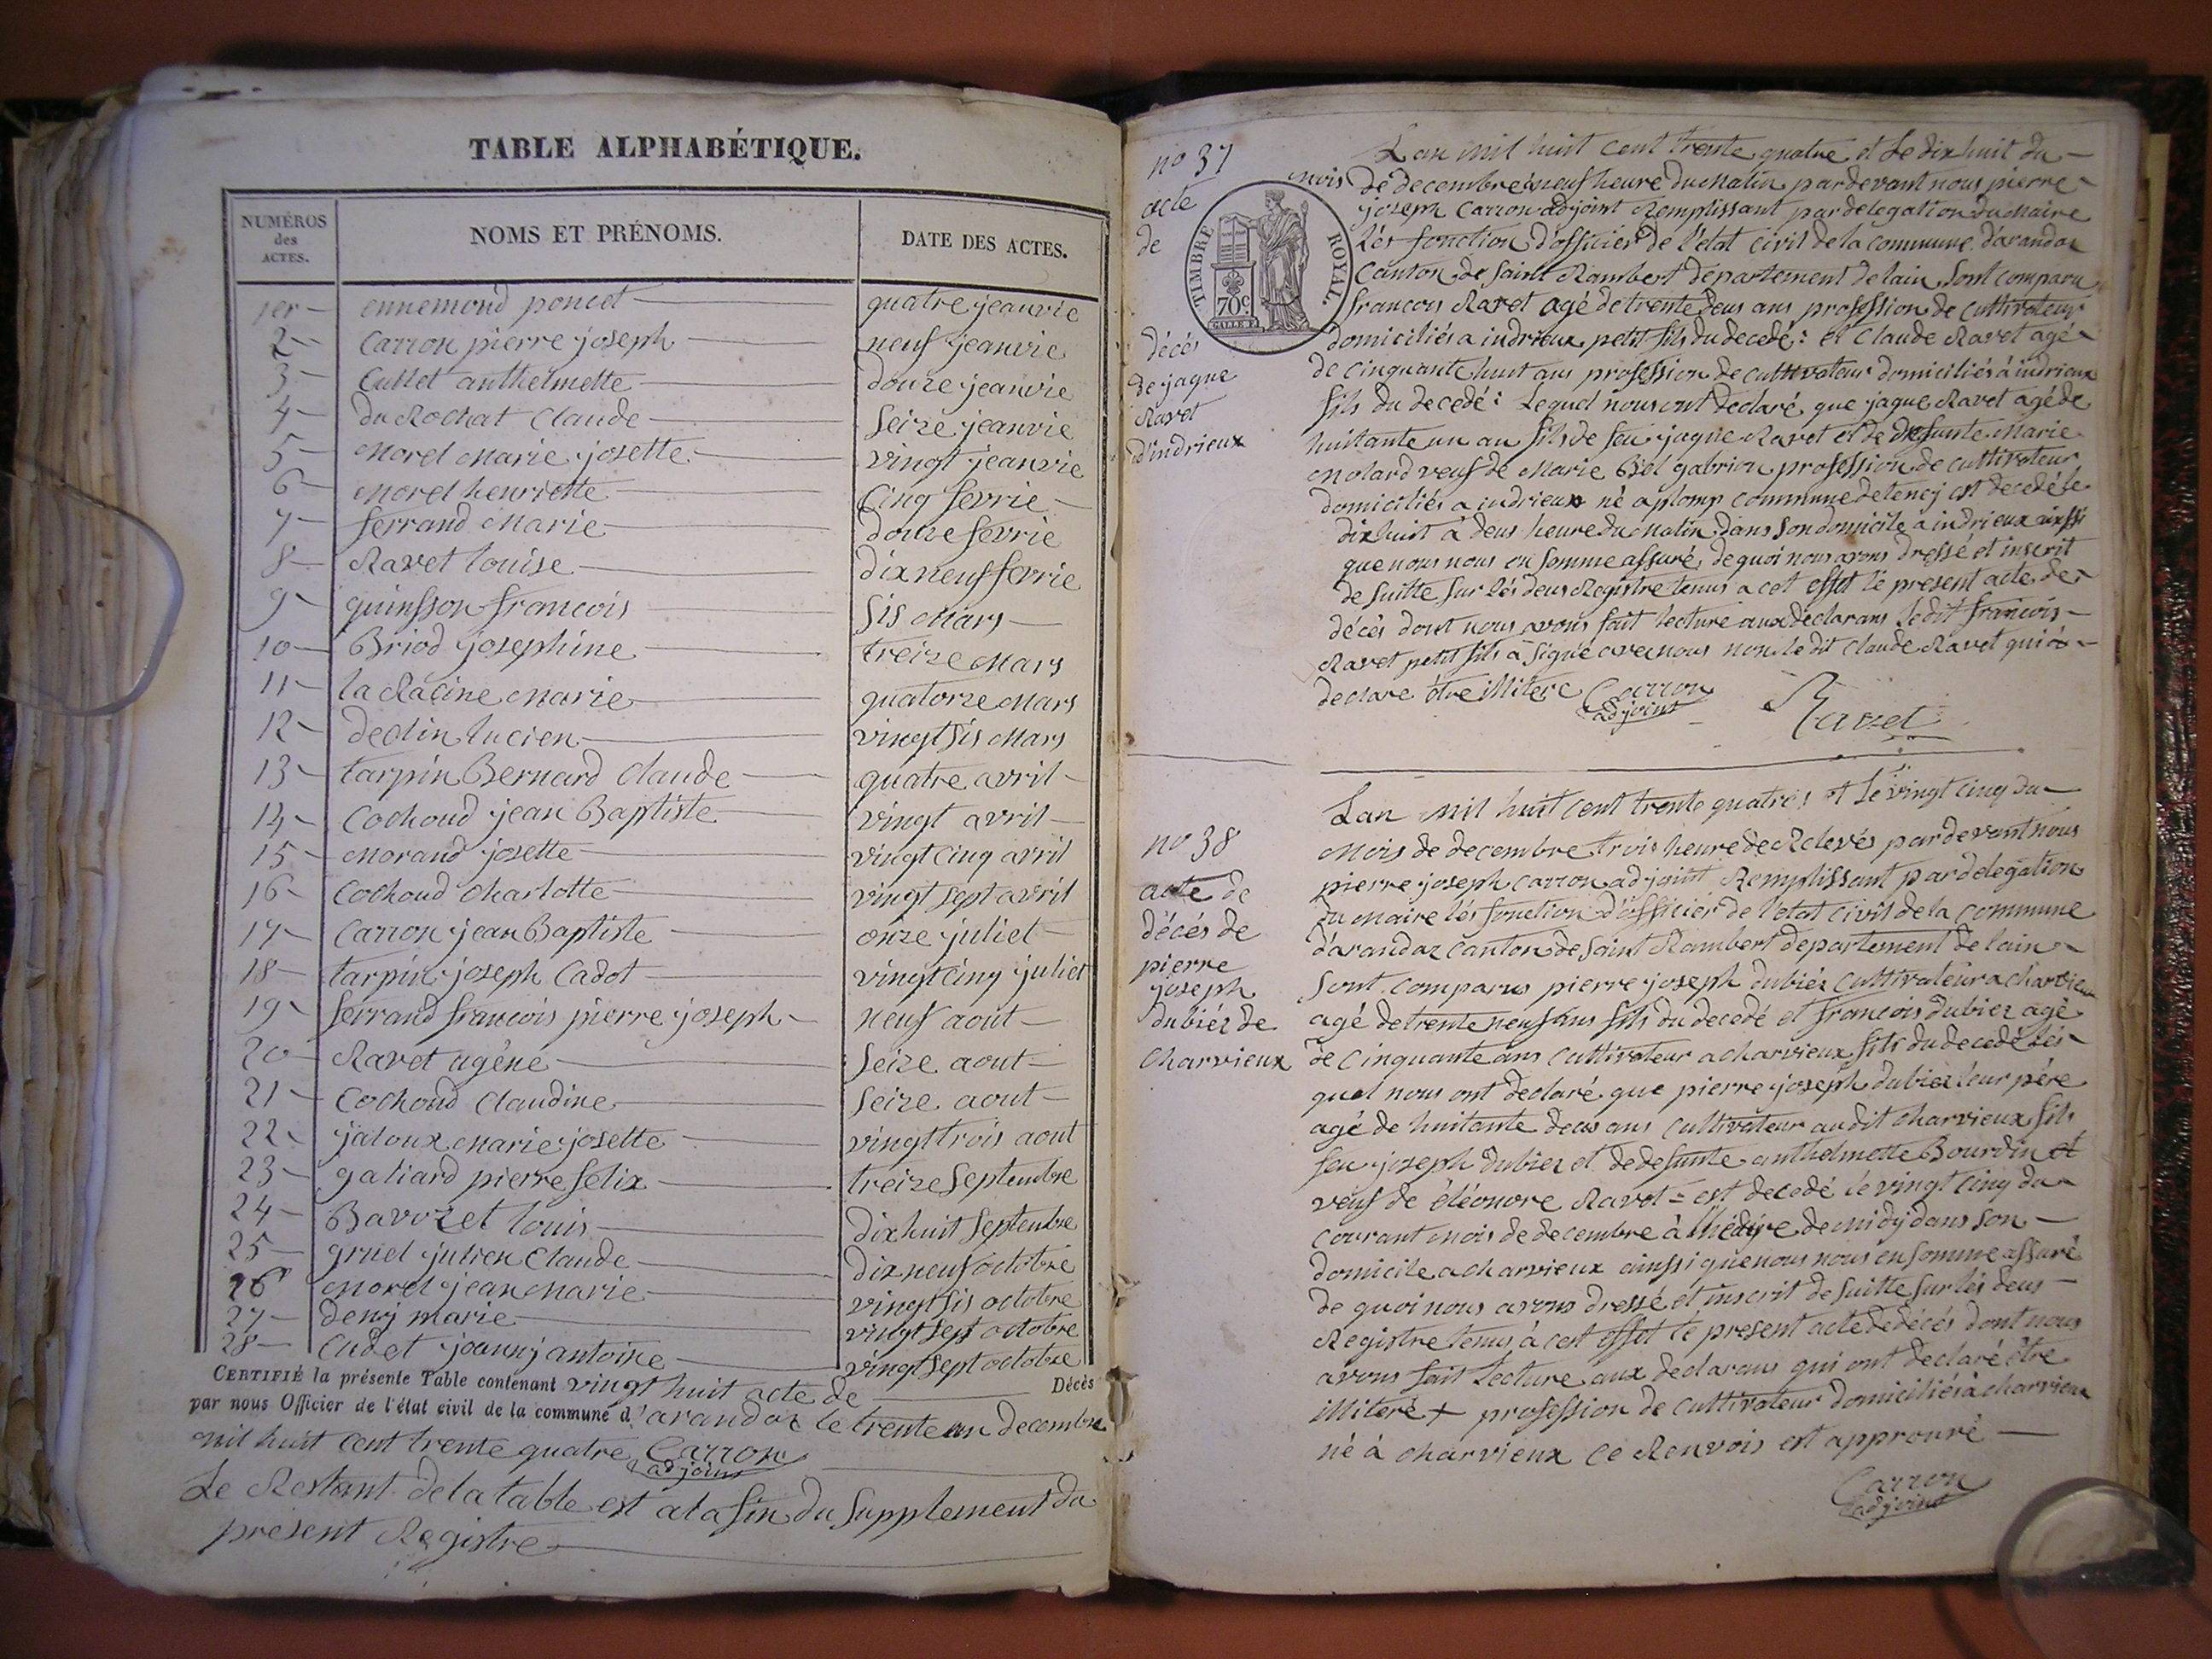 TABLE ALPHABÉTIQUE.
NUMÉROS des ACTES. NOMS ET PRÉNOMS. DATE DES ACTES.
1er ennemond poncet quatre jeanvie
2 Carron pierre joseph neuf jeanvie
3 Cullet anthelmette douze jeanvie
4 du Rochat Claude Seize jeanvie
5 Morel Marie josette vingt jeanvie
6 Morel henriette Cinq fevrie
7 ferrand Marie douze fevrie
8 Ravet louise dix neuf fevrie
9 quinsson francois Sis Mars
10 Briod josephine treize Mars
11 la Racine Marie quatorze Mars
12 declin lucien vingt Sis Mars
13 tarpin Bernard Claude quatre avril
14 Cochoud jean Baptiste vingt avril
15 Morand josette vingt Cinq avril
16 Cochoud Charlotte vingt sept avril
17 Carron jean Baptiste onze juliet
18 tarpin joseph Cadot vingt Cinq juliet
19 ferrand francois pierre joseph neuf aout
20 Ravet agéne Seize aout
21 Cochoud Claudine Seize aout
22 jaloux Marie josette vingt trois aout
23 galiard pierre felix treize Septembre
24 Bavozet louis dix huit Septembre
25 gruel julien Claude dix neuf octobre
26 Morel jean Marie vingt Sis octobre
27 denij marie vingt sept octobre
28 Cudet joannij antoine vingt sept octobre
CERTIFIÉ la présente Table contenant vingt huit acte de Décès
par nous Officier de l'état civil de la commune d'arandaz le trente un decembre
mil huit cent trente quatre Carron
adjoint
Le Restant de la table est a la fin du Supplement du
present Registre
no 37
acte
de
décés
de jaque
Ravet
d'indrieux
TIMBRE ROYAL.
70c.
Lan mil huit cent trente quatre et le dix huit du
mois de decembre à neuf heure du Matin pardevant nous pierre
joseph Carron adjoint Remplissant par delegation du Maire
lés fonction d'officier de l'etat civil de la commune d'arandaz
Canton de Saint Rambert departement de lain, Sont comparu
francois Ravet agé de trente deus ans profession de cultivateur
domiciliés a indrieux petit fils du decedé: et Claude Ravet agé
de cinquante huit ans profession de cultivateur domiciliés à indrieux
fils du decedé: Lequel nous ont declaré que jaque Ravet agé de
huitante un an fils de feu jaque Ravet et de defunte Marie
Molard veuf de Marie Biel gabrion profession de cultivateur
domiciliés a indrieux né a plomp commune de tenej est decedé le
dix huit à deus heure du Matin dans Son domicile a indrieux ainssi
que nous nous en Somme assuré, de quoi nous avons dressé et inscrit
de Suitte Sur lés deus Registre tenus a cet effet le present acte de
décès dont nous avons fait lecture aux declarans ledit francois
Ravet petit fils a Signé avec nous non ledit Claude Ravet qui a
declare être illiteré Carron
adjoint
Ravet
no 38
acte de
décés de
pierre
joseph
dubiéz de
Charvieux
Lan mil huit cent trente quatre! et le vingt cinq du
Mois de decembre trois heure de Relevés pardevant nous
pierre joseph Carron adjoint Remplissant par delegation
du Maire lés fonction d'officier de l'etat civil de la commune
d'arandaz canton de Saint Rambert departement de lain
Sont comparus pierre joseph dubiéz cultivateur a charvieux
agé de trente neuf ans fils du decedé et francois dubiez agé
de cinquante ans cultivateur a charvieux fils du decedé Lés
quel nous ont declaré que pierre joseph dubiez leur pére
agé de huitante deus ans cultivateur au dit charvieux fils
feu joseph dubiez et de defunte anthelmette Bourdin et
veuf de éléonore Ravet = est decedé le vingt cinq du
courant mois de decembre à de midy dans Son
domicile a charvieux ainssi que nous nous en Somme assuré
de quoi nous avons dressé et inscrit de Suitte Sur lés deus
Registre tenus à cet effet le present acte de décés dont nous
avons fait Lecture aux declarans qui ont declaré être
illiteré + profession de cultivateur domiciliés à charvieux
né à charvieux Ce Renvois est approuvé
Carron
adjoint